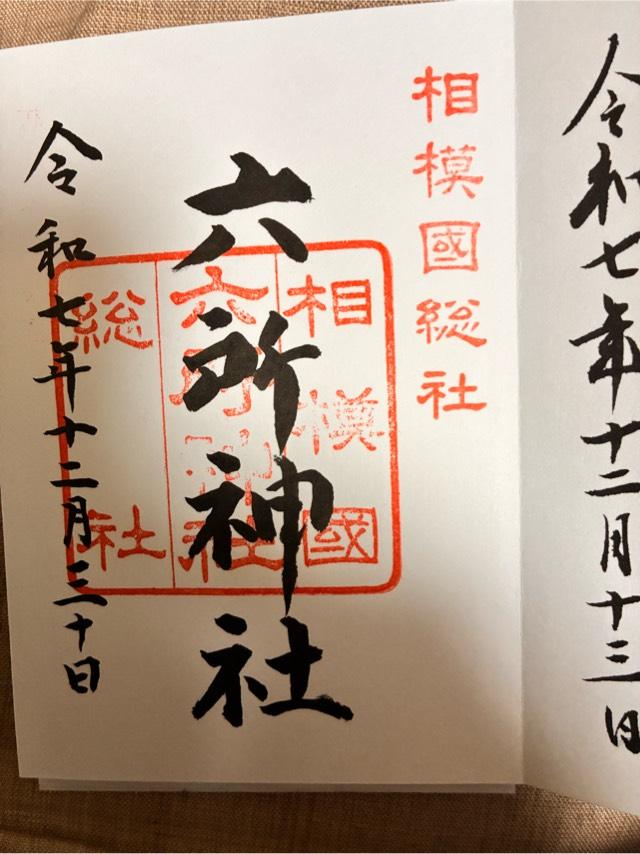 令和七年十二月十三日
相模國総社
六所神社
相模國
六所神社
総社
令和七年十二月三十日